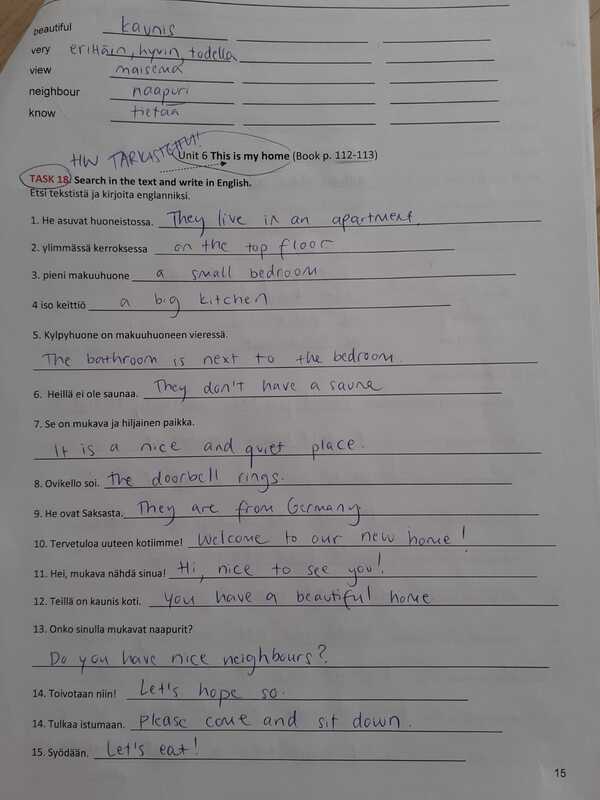 beautiful kaunis
very erittäin, hyvin, todella
view maisema
neighbour naapuri
know tietää
HW TARKISTETTU!
Unit 6 This is my home (Book p. 112-113)
TASK 18 Search in the text and write in English.
Etsi tekstistä ja kirjoita englanniksi.
1. He asuvat huoneistossa. They live in an apartment.
2. ylimmässä kerroksessa on the top floor
3. pieni makuuhuone a small bedroom
4 iso keittiö a big kitchen
5. Kylpyhuone on makuuhuoneen vieressä.
The bathroom is next to the bedroom.
6. Heillä ei ole saunaa. They don't have a sauna
7. Se on mukava ja hiljainen paikka.
It is a nice and quiet place.
8. Ovikello soi. The doorbell rings.
9. He ovat Saksasta. They are from Germany
10. Tervetuloa uuteen kotiimme! Welcome to our new home!
11. Hei, mukava nähdä sinua! Hi, nice to see you!
12. Teillä on kaunis koti. you have a beautiful home
13. Onko sinulla mukavat naapurit?
Do you have nice neighbours?
14. Toivotaan niin! Let's hope so.
14. Tulkaa istumaan. Please come and sit down.
15. Syödään. Let's eat!
15